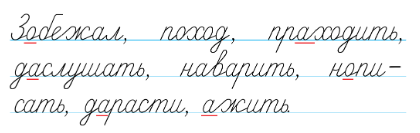 Зобежал, поход, праходить,
даслушать, наварить, нопи-
сать, дарасти, ажить.